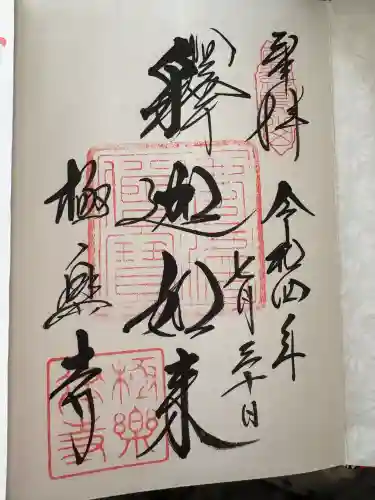 奉拝
令和四年七月三十日
釋迦如来
極楽寺
極樂寺